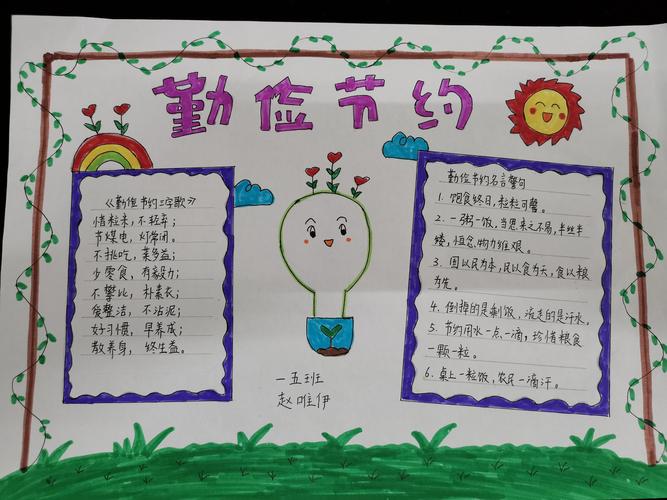 勤俭节约
《勤俭节约三字歌》
惜粒米,不轻弃;
节煤电,灯常闭。
不挑吃,菜多益;
少零食,有毅力;
不攀比,朴素衣;
爱整洁,不沾泥;
好习惯,早养成;
教养身,终生益。
一五班
赵唯伊
勤俭节约名言警句
1. 饱食终日,粒粒可警。
2. 一粥一饭,当思来之不易,半丝半
缕,恒念物力维艰。
3. 国以民为本,民以食为天,食以粮
为先。
4. 倒掉的是剩饭,流走的是汗水。
5. 节约用水一点一滴,珍惜粮食
一颗一粒。
6. 桌上一粒饭,农民一滴汗。